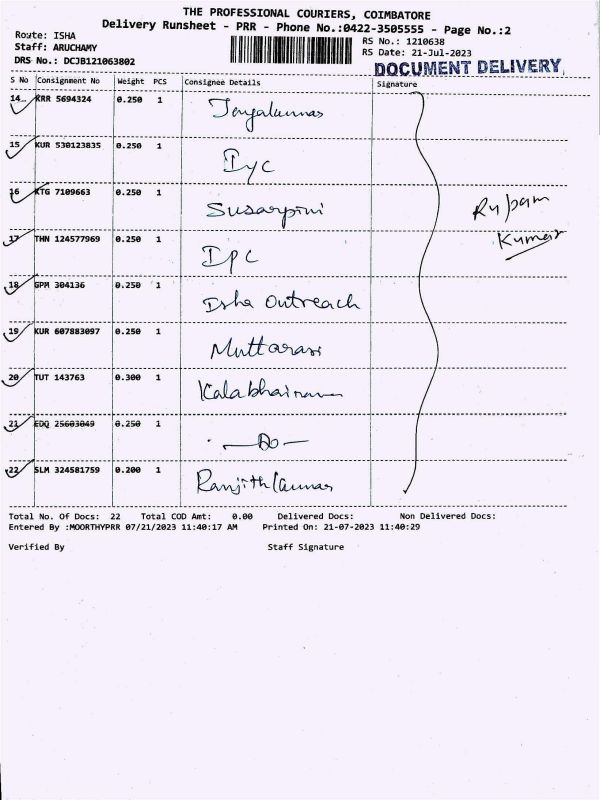 THE PROFESSIONAL COURIERS, COIMBATORE
Delivery Runsheet - PRR - Phone No.:0422-3505555 - Page No.:2
Route: ISHA
Staff: ARUCHAMY
DRS No.: DCJB121063802
RS No.: 1210638
RS Date: 21-Jul-2023
DOCUMENT DELIVERY
S No Consignment No Weight PCS Consignee Details Signature
14 KRR 5694324 0.250 1
15 KUR 530123835 0.250 1 IYC
16 KTG 7109663 0.250 1 Susarpini
Rupam
Kumar
17 THN 124577969 0.250 1 IPC
18 GPM 304136 0.250 1 Isha Outreach
19 KUR 607883097 0.250 1 Muttarasi
20 TUT 143763 0.300 1 Kalabhairava
21 EDQ 25603049 0.250 1 - Do -
22 SLM 324581759 0.200 1 Ranjithkumar
Total No. Of Docs: 22 Total COD Amt: 0.00 Delivered Docs: Non Delivered Docs:
Entered By :MOORTHYPRR 07/21/2023 11:40:17 AM Printed On: 21-07-2023 11:40:29
Verified By Staff Signature